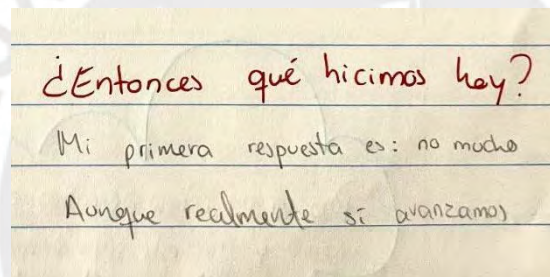 ¿Entonces qué hicimos hoy?
Mi primera respuesta es: no mucho
Aunque realmente sí avanzamos